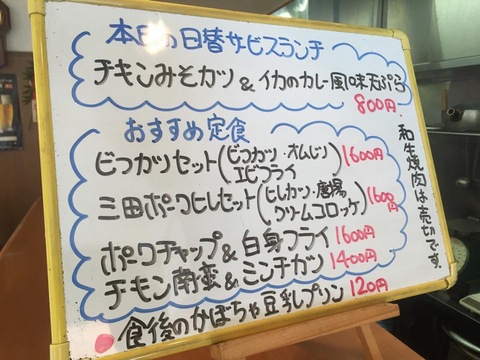 本日の日替サービスランチ
チキンみそカツ & イカのカレー風味天ぷら
800円
おすすめ定食
ビフカツセット(ビフカツ・オムレツ エビフライ) 1600円
三田ポークヒレセット(ヒレカツ・唐揚 クリームコロッケ) 1600円
ポークチャップ & 白身フライ 1600円
チキン南蛮 & ミンチカツ 1400円
食後のかぼちゃ豆乳プリン 120円
和牛焼肉は売切です。